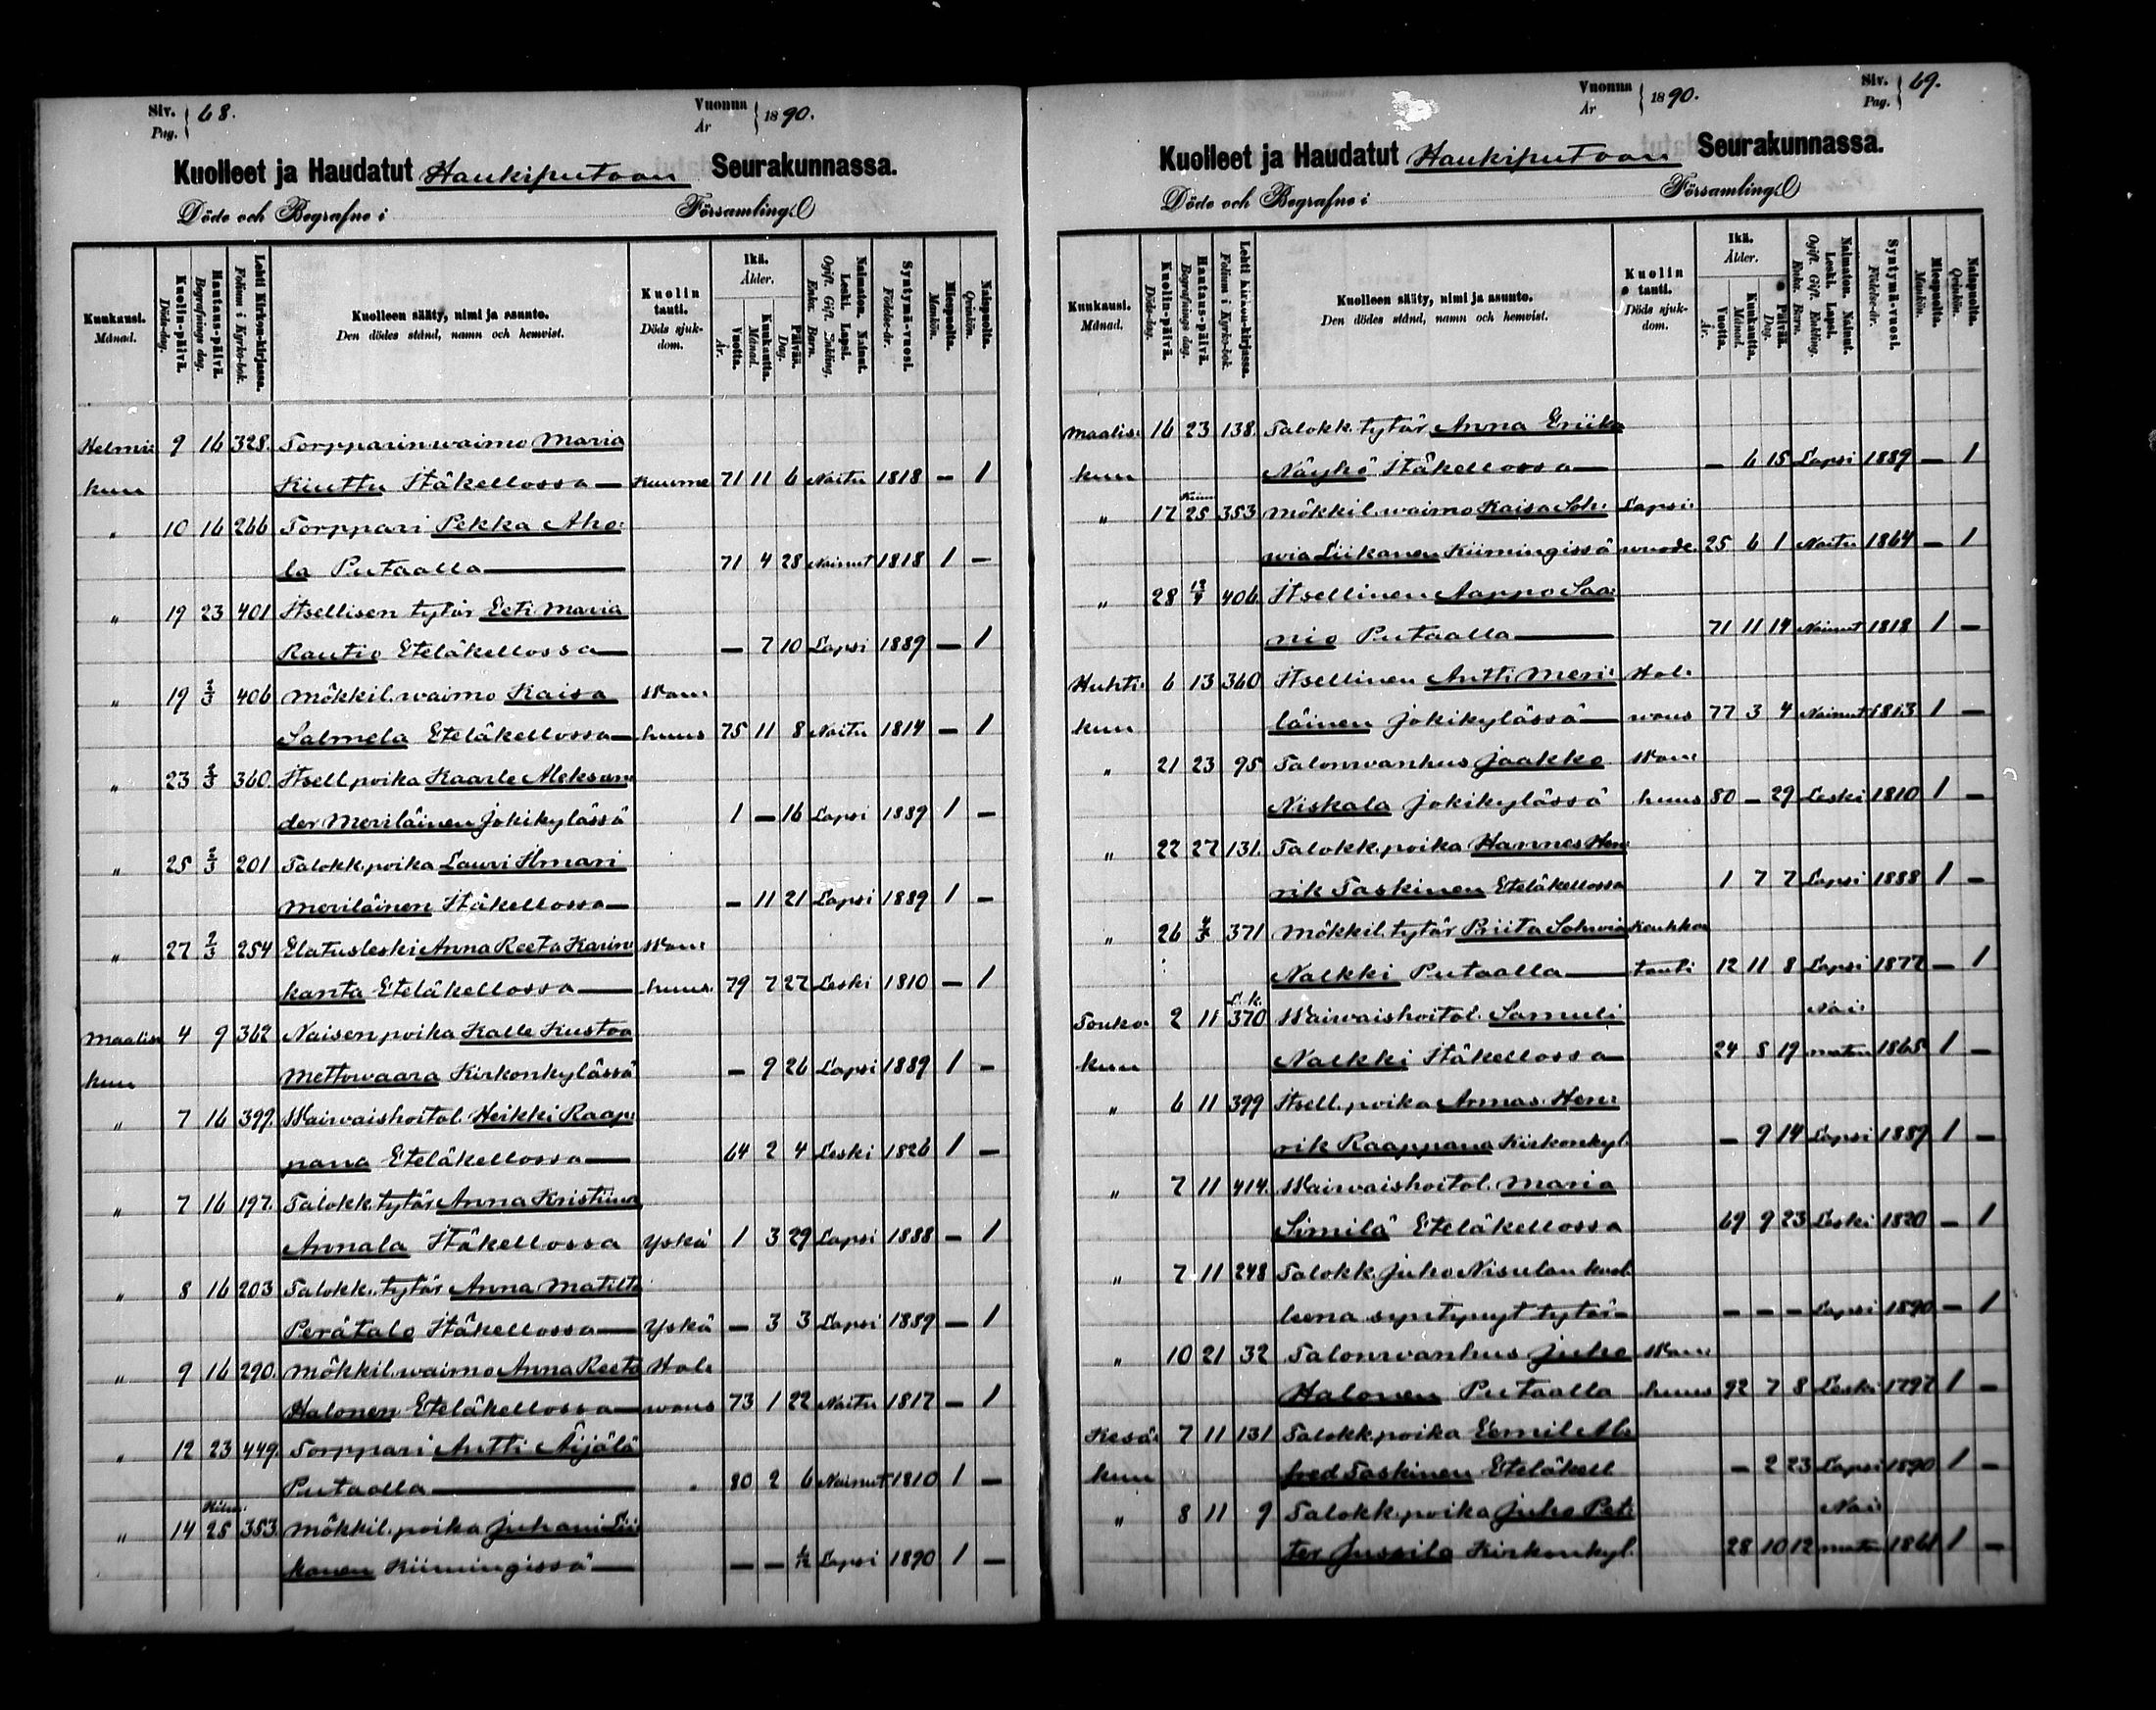 Siv. 68.
Pag.
Vuonna 1890.
År
Kuolleet ja Haudatut Haukiputaan Seurakunnassa.
Döde och Begrafne i Församling
Kuukausi. Månad.
Kuolin-päivä. Döds-dag.
Hautaus-päivä. Begrafnings dag.
Lehti Kirkon-kirjassa. Folium i Kyrko-bok.
Kuolleen sääty, nimi ja asunto.
Den dödes stånd, namn och hemvist.
Kuolin tauti. Döds sjukdom.
Ikä. Ålder.
Vuotta. År.
Kuukautta. Månad.
Päivää. Dag.
Naimaton. Nainut. Leski. Lapsi.
Ogift. Gift. Enkling. Enka. Barn.
Syntymä-vuosi. Födelse-år.
Miespuolta. Mankön.
Naispuolta. Qvinkön.
Helmi- 9 16 328. Torpparin waimo Maria
kuu Kiuttu Itäkellossa — Kuume 71 11 6 Naitu 1818 — 1
" 10 16 266 Torppari Pekka Aho-
la Putaalla — 71 4 28 Nainut 1818 1 —
" 19 23 401 Itsellisen tytär Eeti Maria
Rautio Eteläkellossa — — 7 10 Lapsi 1889 — 1
" 19 2/3 406 Mökkil. waimo Kaisa Wan-
Salmela Eteläkellossa — huus 75 11 8 Naitu 1814 — 1
" 23 2/3 360. Itsell. poika Kaarle Aleksan-
der Meriläinen Jokikylässä 1 — 16 Lapsi 1889 1 —
" 25 2/3 201 Talokk. poika Lauri Ilmari
Meriläinen Itäkellossa — — 11 21 Lapsi 1889 1 —
" 27 2/3 254 Elatusleski Anna Reeta Karin- Wan-
kanta Eteläkellossa — huus. 79 7 27 Leski 1810 — 1
Maalis- 4 9 362 Naisen poika Kalle Kustaa
kuu Mettowaara Kirkonkylässä — 9 26 Lapsi 1889 1 —
" 7 16 399. Waiwaishoitol. Heikki Raap-
pana Eteläkellossa — 64 2 4 Leski 1826 1 —
" 7 16 197. Talokk. tytär Anna Kristiina
Annala Itäkellossa Yskä 1 3 29 Lapsi 1888 — 1
" 8 16 203 Talokk. tytär Anna Matilta
Perätalo Itäkellossa — Yskä — 3 3 Lapsi 1889 — 1
" 9 16 290. Mökkil. waimo Anna Reeta Hal-
Halonen Eteläkellossa — waus 73 1 22 Naitu 1817 — 1
" 12 23 449. Torppari Antti Äijälä
Putaalla — 80 2 6 Nainut 1810 1 —
" 14 25 353. Mökkil. poika Juhani Lii-
kanen Kiimingissä — — — 1/2 Lapsi 1890 1 —
Vuonna 1890.
År
Siv. 69.
Pag.
Kuolleet ja Haudatut Haukiputaan Seurakunnassa.
Döde och Begrafne i Församling
Kuukausi. Månad.
Kuolin-päivä. Döds-dag.
Hautaus-päivä. Begrafnings dag.
Lehti kirkon-kirjassa. Folium i Kyrko-bok.
Kuolleen sääty, nimi ja asunto.
Den dödes stånd, namn och hemvist.
Kuolin tauti. Döds sjukdom.
Ikä. Ålder.
Vuotta. År.
Kuukautta. Månad.
Päivää. Dag.
Naimaton. Nainut. Leski. Lapsi.
Ogift. Gift. Enkling. Enka. Barn.
Syntymä-vuosi. Födelse-år.
Miespuolta. Mankön.
Naispuolta. Qvinkön.
Maalis- 16 23 138. Talokk. tytär Anna Eriika
kuu Näykö Itäkellossa — — 6 15 Lapsi 1889 — 1
" 17 25 353 Mökkil. waimo Kaisa Soh- Lapsi-
wia Liikanen Kiimingissä wuode. 25 6 1 Naitu 1864 — 1
" 28 406. Itsellinen Aappo Saa-
nio Putaalla — 71 11 14 Nainut 1818 1 —
Huhti- 6 13 360 Itsellinen Antti Meri- Hal-
kuu läinen Jokikylässä — waus 77 3 4 Nainut 1813 1 —
" 21 23 95 Talonwanhus Jaakko Wan-
Niskala Jokikylässä huus 80 — 29 Leski 1810 1 —
" 22 27 131. Talokk. poika Hannes Hen-
rik Taskinen Eteläkellossa 1 7 7 Lapsi 1888 1 —
" 26 4/5 371 Mökkil. tytär Priita Sohwia Keuhko
Nalkki Putaalla — tauti 12 11 8 Lapsi 1877 — 1
Touko- 2 11 L. k. 370 Waiwaishoitol. Samuli Nai-
kuu Nalkki Itäkellossa — 24 5 19 maton 1865 1 —
" 6 11 399 Itsell. poika Armas Hen-
rik Raappana Kirkonkyl. — 9 14 Lapsi 1889 1 —
" 7 11 414. Waiwaishoitol. Maria
Similä Eteläkellossa 69 9 23 Leski 1820 — 1
" 7 11 248 Talokk. Juho Nisulan kuol-
leena syntynyt tytär — — — — Lapsi 1890 — 1
" 10 21 32 Talonwanhus Juho Wan-
Halonen Putaalla huus 92 7 8 Leski 1797 1 —
Kesä- 7 11 131 Talokk. poika Eemil Al-
kuu fred Taskinen Eteläkell. — 2 23 Lapsi 1890 1 —
" 8 11 9 Talokk. poika Juho Pet- Nai-
ter Jussila Kirkonkyl. 28 10 12 maton 1861 1 —